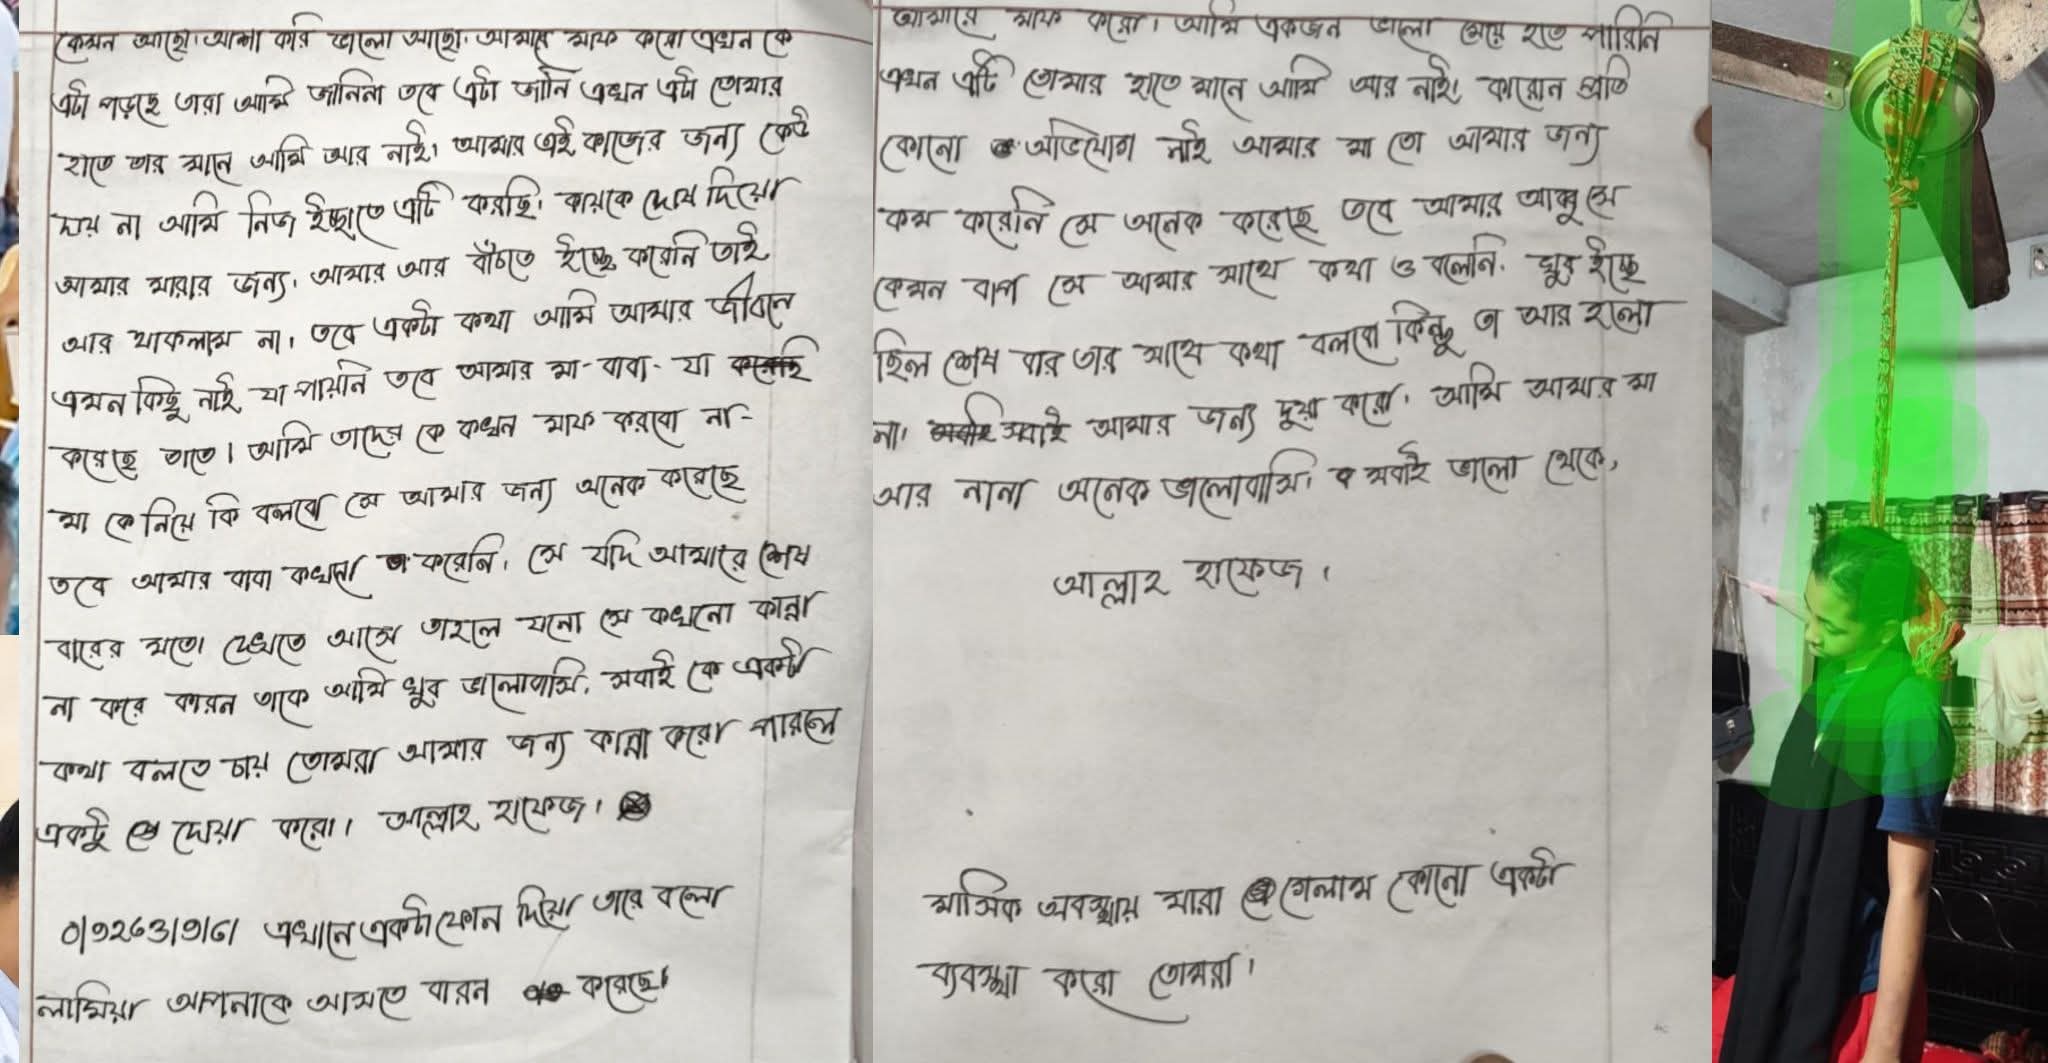 কেমন আছো। আশা করি ভালো আছো। আমারে মাফ করো এখন কে
এটা পড়ছে তারা আমি জানিনা তবে এটা জানি এখন এটা তোমার
হাতে তার মানে আমি আর নাই। আমার এই কাজের জন্য কেউ
দায় না আমি নিজ ইচ্ছাতে এটি করছি। কায়কে দোষ দিয়ো
আমার মারার জন্য। আমার আর বাঁচতে ইচ্ছে করেনি তাই
আর থাকলাম না। তবে একটা কথা আমি আমার জীবনে
এমন কিছু নাই যা পায়নি তবে আমার মা-বাবা- যা
করেছে তাতে। আমি তাদের কে কখন মাফ করবো না-
মা কে নিয়ে কি বলবো সে আমার জন্য অনেক করেছে
তবে আমার বাবা কখনো করেনি। সে যদি আমারে শেষ
বারের মতো দেখতে আসে তাহলে যনো সে কখনো কান্না
না করে কারন তাকে আমি খুব ভালোবাসি। সবাই কে একটা
কথা বলতে চায় তোমরা আমার জন্য কান্না করো পারলে
একটু দোয়া করো। আল্লাহ হাফেজ।
এখানে একটা ফোন দিয়ো তারে বলো
লামিয়া আপনাকে আসতে বারন করেছে।
আমারে মাফ করো। আমি একজন ভালো মেয়ে হতে পারিনি
এখন এটি তোমার হাতে মানে আমি আর নাই। কারোন প্রতি
কোনো অভিযোগ নাই আমার মা তো আমার জন্য
কম করেনি সে অনেক করেছে তবে আমার আব্বু সে
কেমন বাপ সে আমার সাথে কথা ও বলেনি। খুব ইচ্ছে
ছিল শেষ বার তার সাথে কথা বলবো কিন্তু তা আর হলো
না। সবাই আমার জন্য দুয়া করো। আমি আমার মা
আর নানা অনেক ভালোবাসি। সবাই ভালো থেকে,
আল্লাহ হাফেজ।
মাসিক অবস্থায় মারা গেলাম কোনো একটা
ব্যবস্থা করো তোমরা।